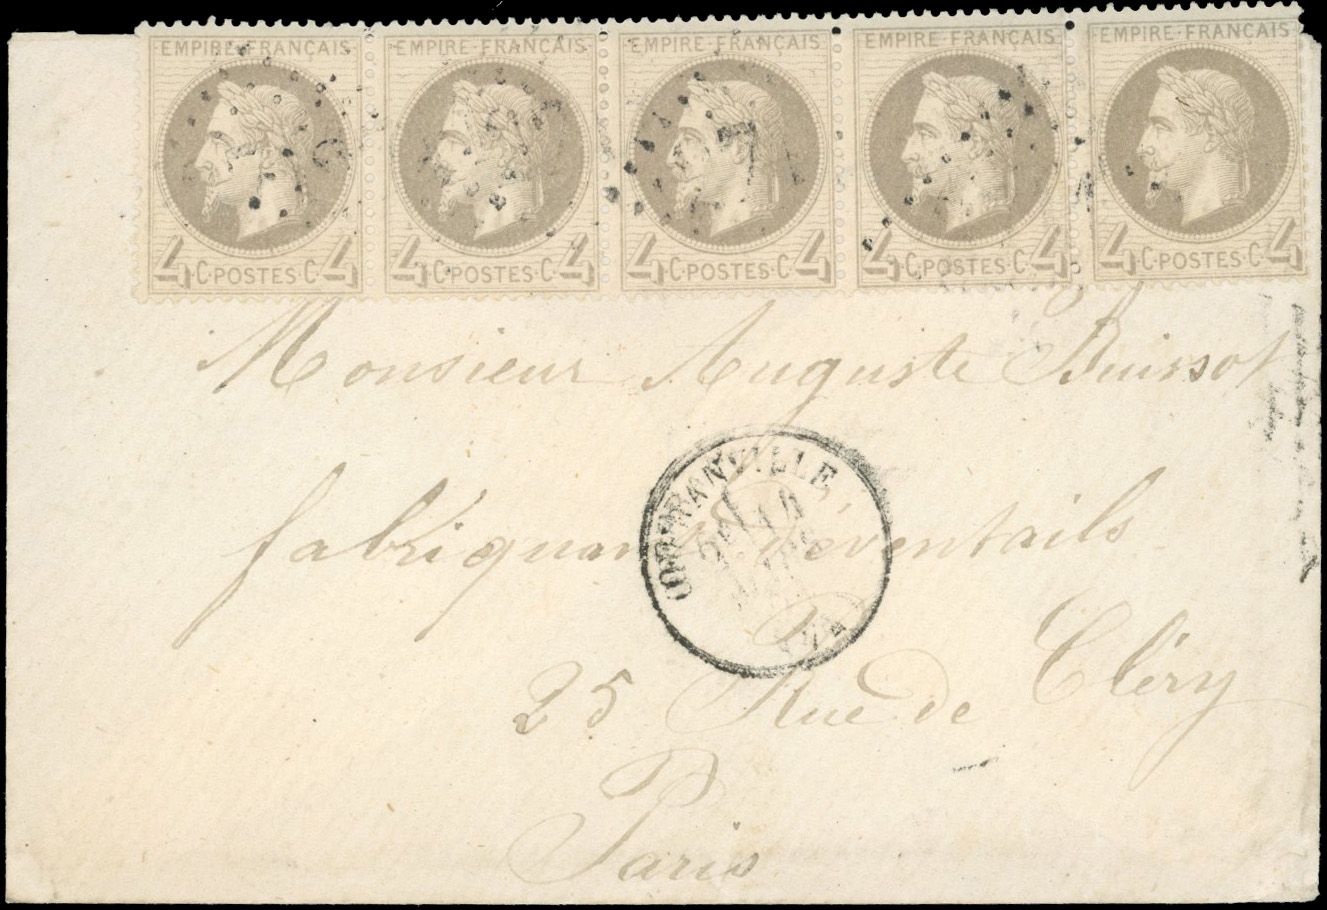 EMPIRE·FRANÇAIS EMPIRE·FRANÇAIS EMPIRE·FRANÇAIS EMPIRE·FRANÇAIS EMPIRE·FRANÇAIS
4 C·POSTES·C 4 4 C·POSTES·C 4 4 C·POSTES·C 4 4 C·POSTES·C 4 4 C·POSTES·C 4
Monsieur Auguste Buissot
fabriquant d'éventails
25 Rue de Cléry
Paris